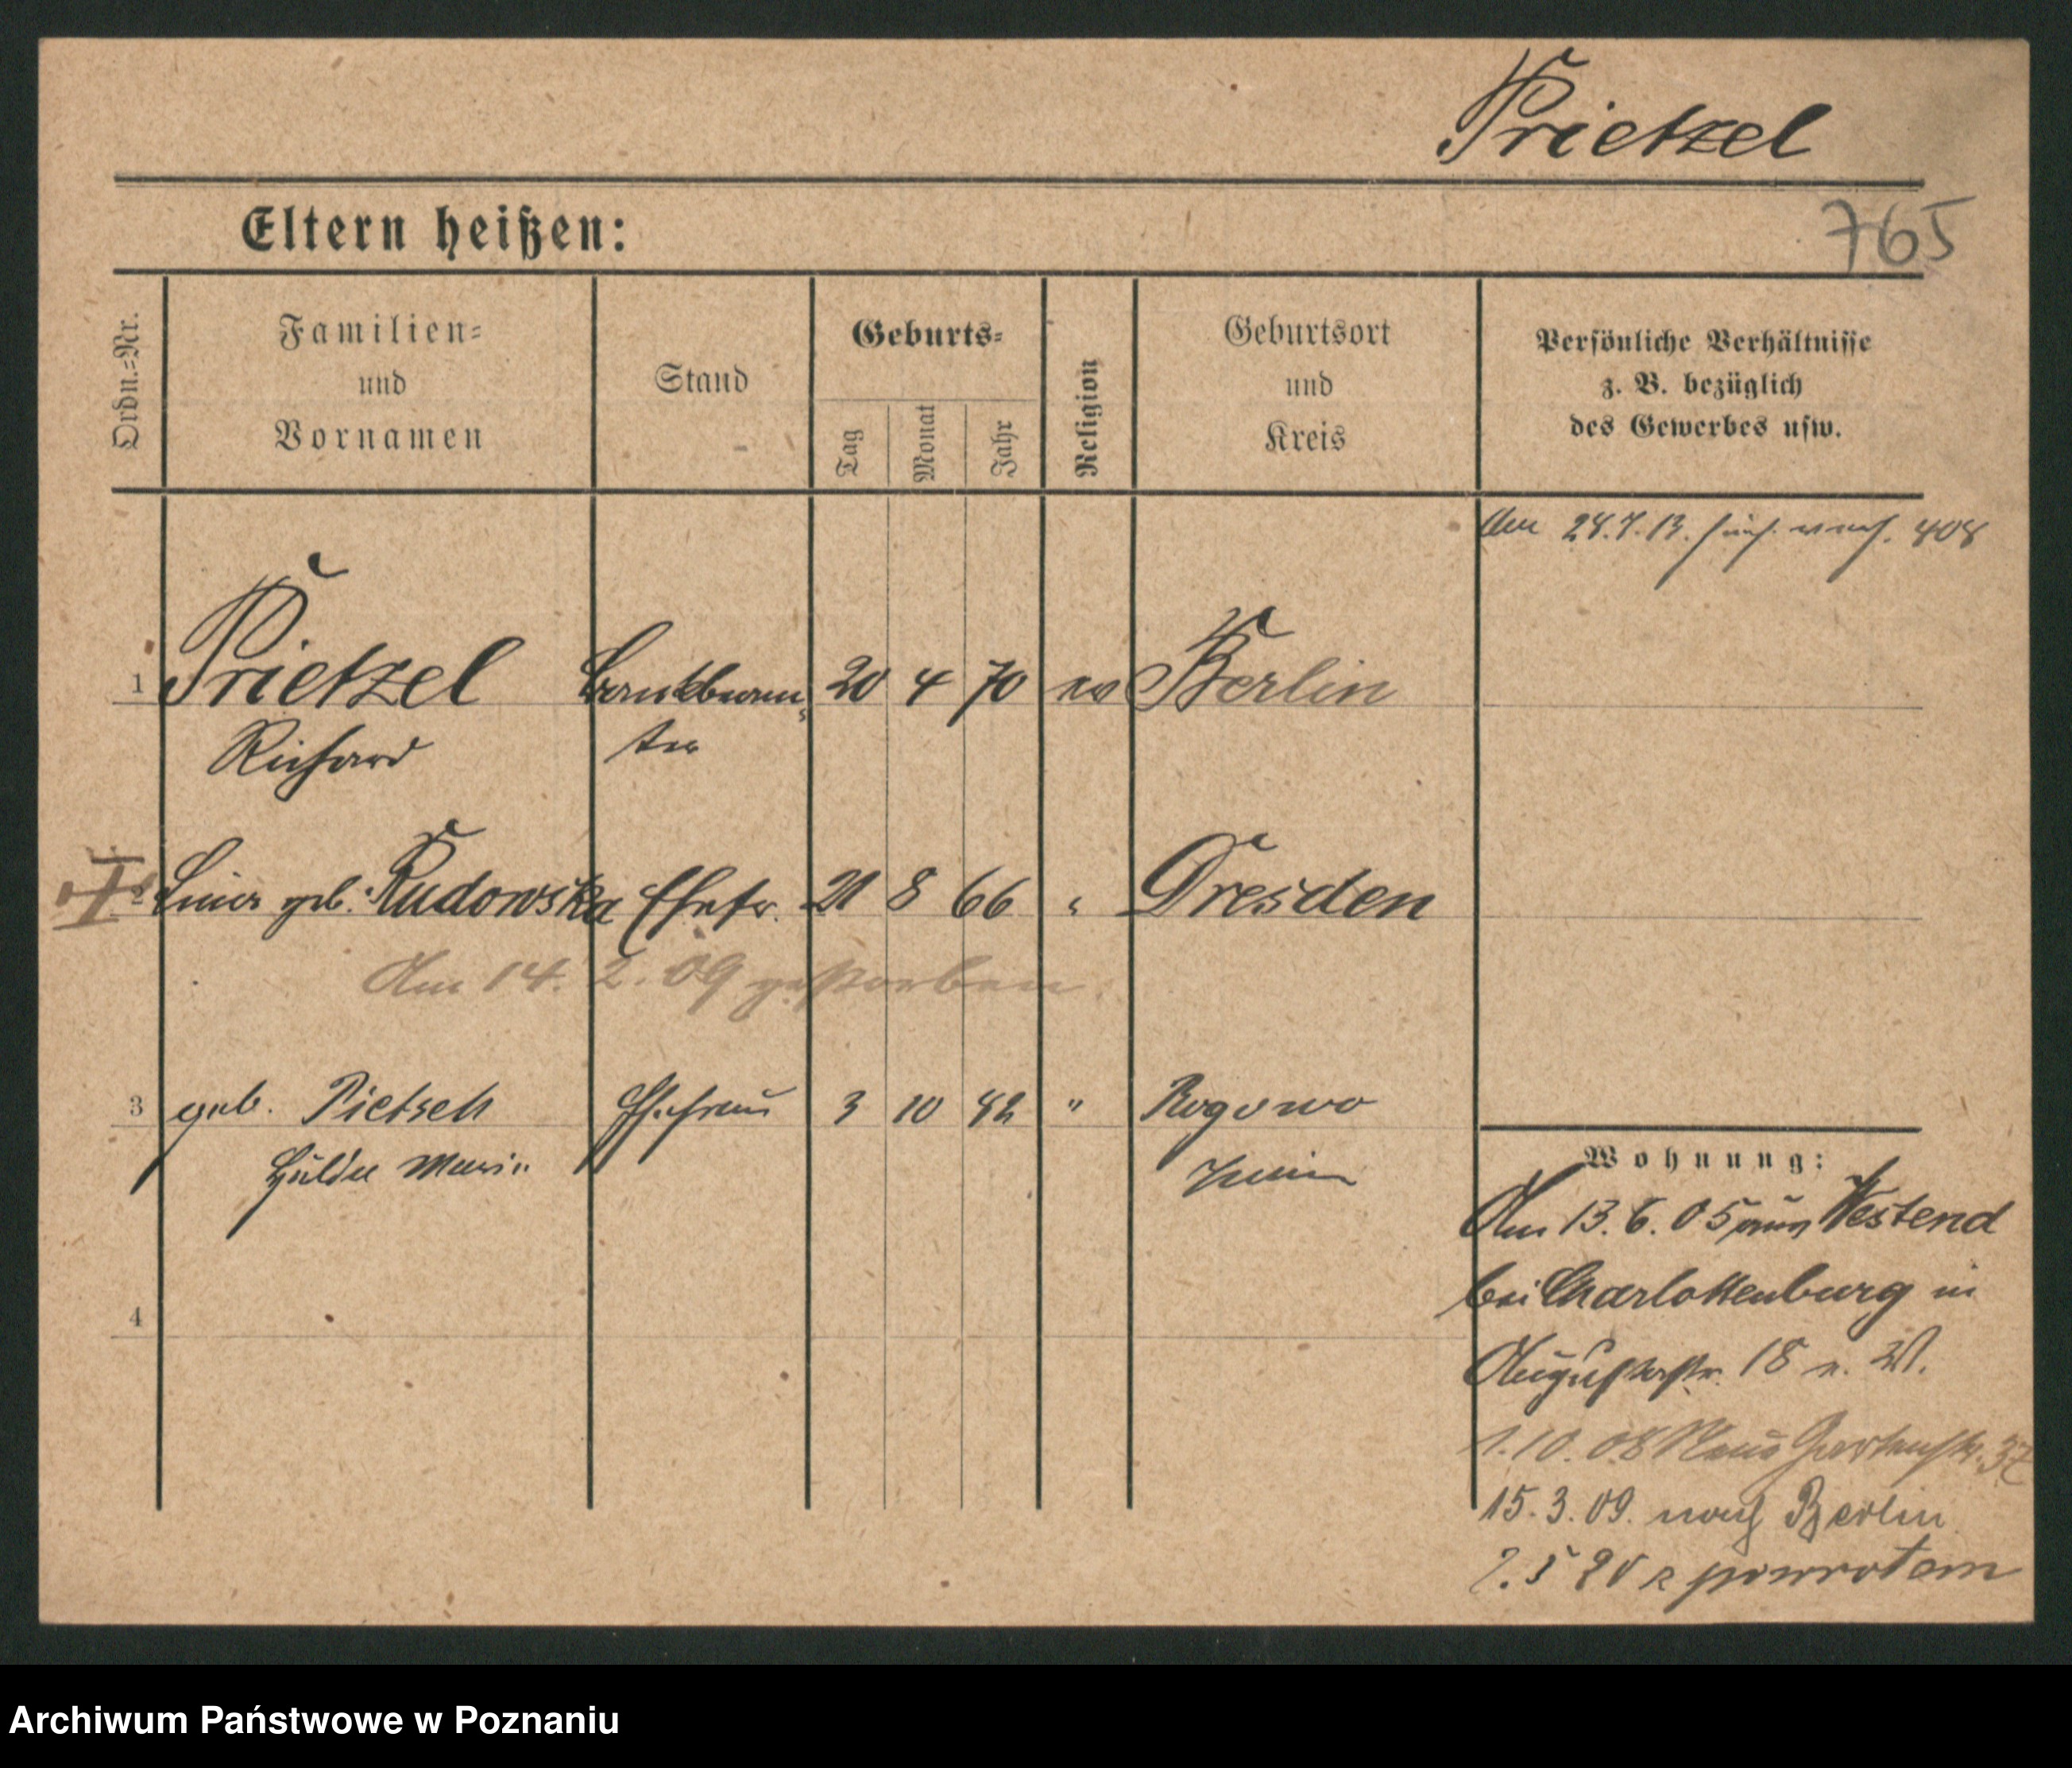 Prietzel
Eltern heißen:
765
Ordn.-Nr.
Familien-
und
Vornamen
Stand
Geburts-
Tag
Monat
Jahr
Religion
Geburtsort
und
Kreis
Persönliche Verhältnisse
z. B. bezüglich
des Gewerbes usw.
Am 408
1 Prietzel Bankbeam- 20 4 70 ev Berlin
Richard ter
2 geb. Rudowska Ehefr. 21 8 66 " Dresden
Am 14. 2. 09 gestorben
3 geb. Pietsch Ehefrau 3 10 82 " Rogowo
Hulda Marie Znin
4
Wohnung:
Am 13. 6. 05 aus Westend
bei Charlottenburg in
Augustastr. 18 n. W.
1. 10. 08 Neue Gartenstr. 37
15. 3. 09. nach Berlin
z powrotem
Archiwum Państwowe w Poznaniu